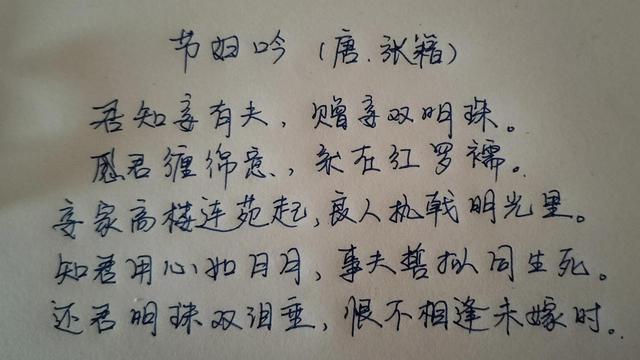 节妇吟（唐.张籍）
君知妾有夫，赠妾双明珠。
感君缠绵意，系在红罗襦。
妾家高楼连苑起，良人执戟明光里。
知君用心如日月，事夫誓拟同生死。
还君明珠双泪垂，恨不相逢未嫁时。